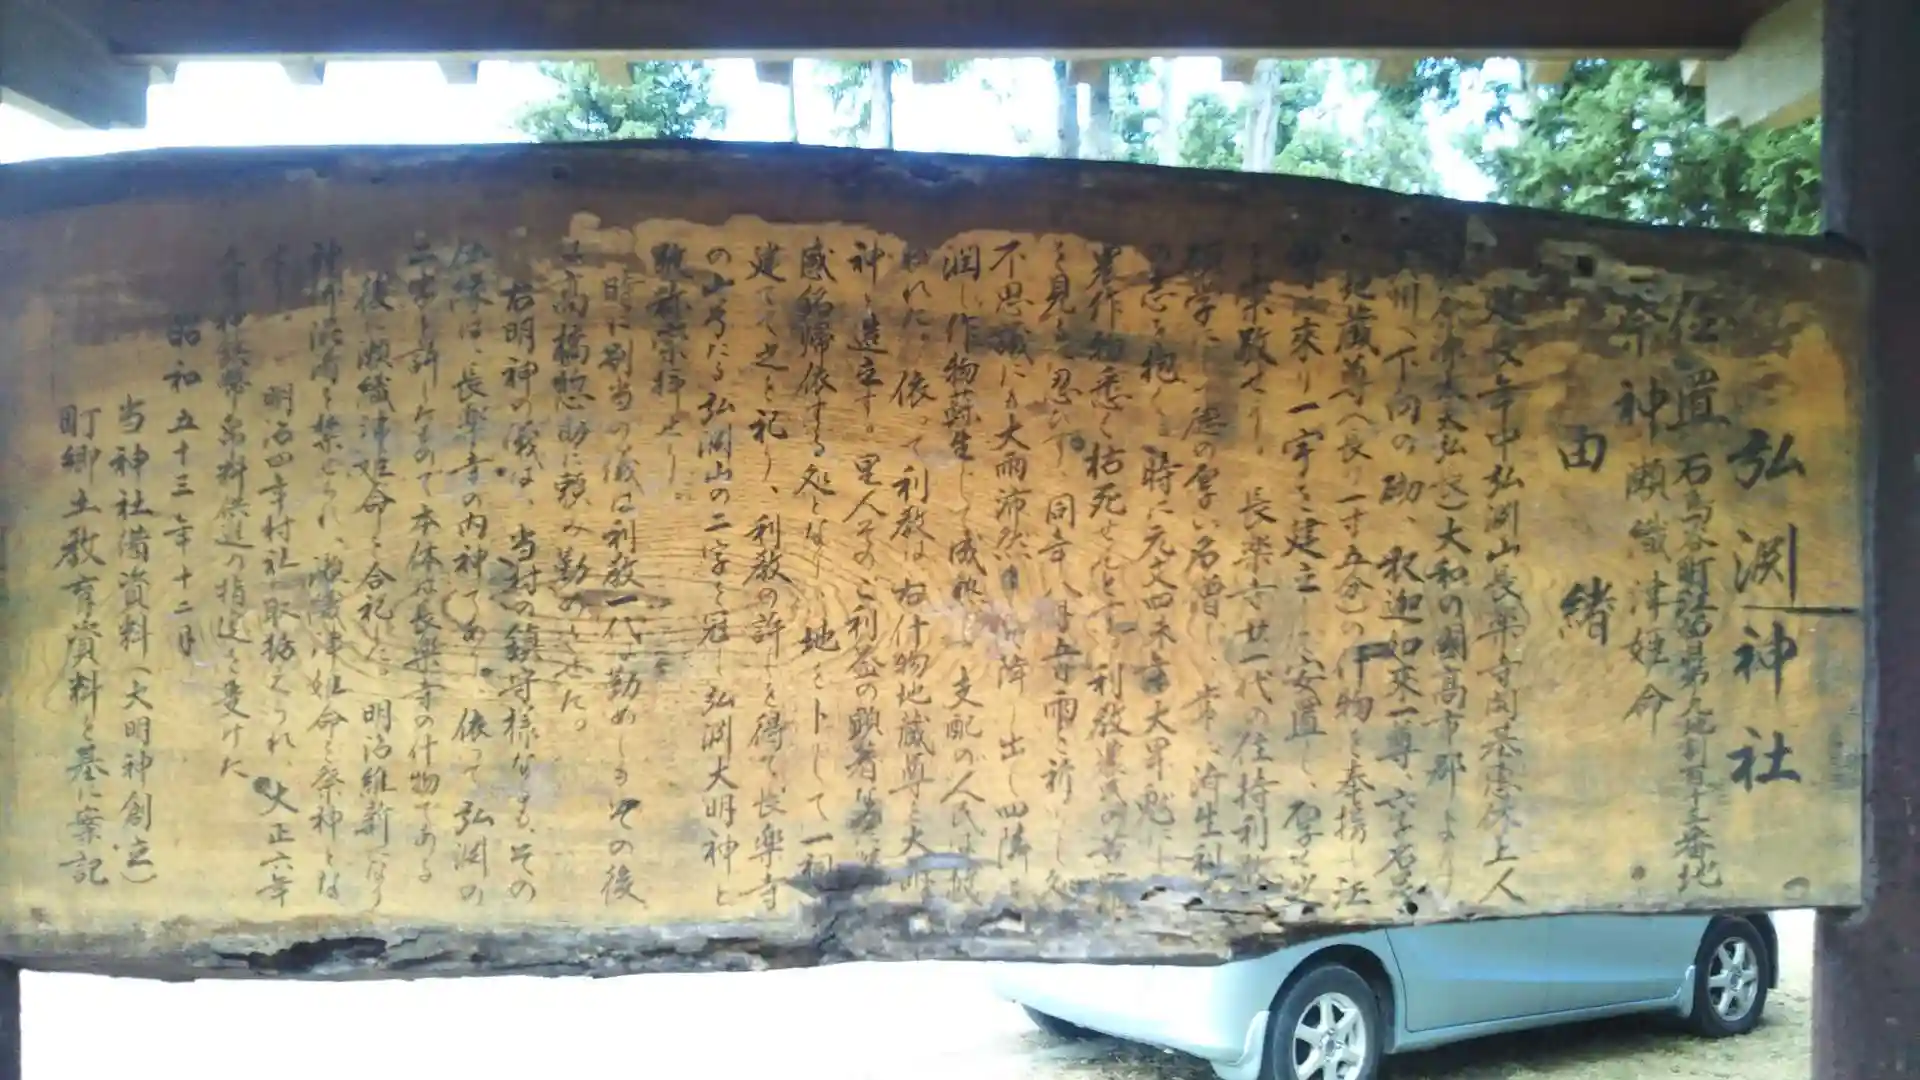 弘渕神社
位置 石鳥谷町江曽第九地割百十三番地
祭神 瀬織津姫命
由緒
建文年中弘渕山長楽寺開基恵灰上人
大和の国高市郡より
川へ下向の砌、釈迦如来一尊、
地蔵尊（長り一寸五分）の什物を奉携し
来り一宇を建立し安置し、厚く
宗敬せり。長楽寺廿一代の住持利教
碩学にして徳の厚い名僧
抱く。時に元文四未年大旱魃に
農作物悉く枯死せんとす。利教農民の
を見るに忍び、同年八月五日雨を祈りし
不思議にも大雨沛然と降り出し四隣を
潤し作物蘇生して成熟し、支配の人民は
れた。依って利教は右什物地蔵尊を大明
神と造立す。里人そのご利益の顕著なるに
感銘帰依する処となり、地を卜して一祠
建てて之を祀り、利教の許しを得て、長楽寺
の山号たる弘渕山の二字を冠し弘渕大明神と
敬称崇拝せり。
時に別当の儀は利教一代は勤めしもその後
は高橋惣助に頼み勤めさせた。
右明神の儀は、当村の鎮守様なるも、その
仏縁は、長楽寺の内神であり、依って弘渕の
二字を許したもので本体は長楽寺の什物である
後に瀬織津姫命を合祀した。明治維新になり
神仏混淆を禁ぜられ、瀬織津姫命を祭神とな
す。明治四年村社に取扱えられ、大正六年
神饌幣帛料供進の指定を受けた
昭和五十三年十二月
当神社備資料（大明神創立）
町郷土教育資料を基に案記